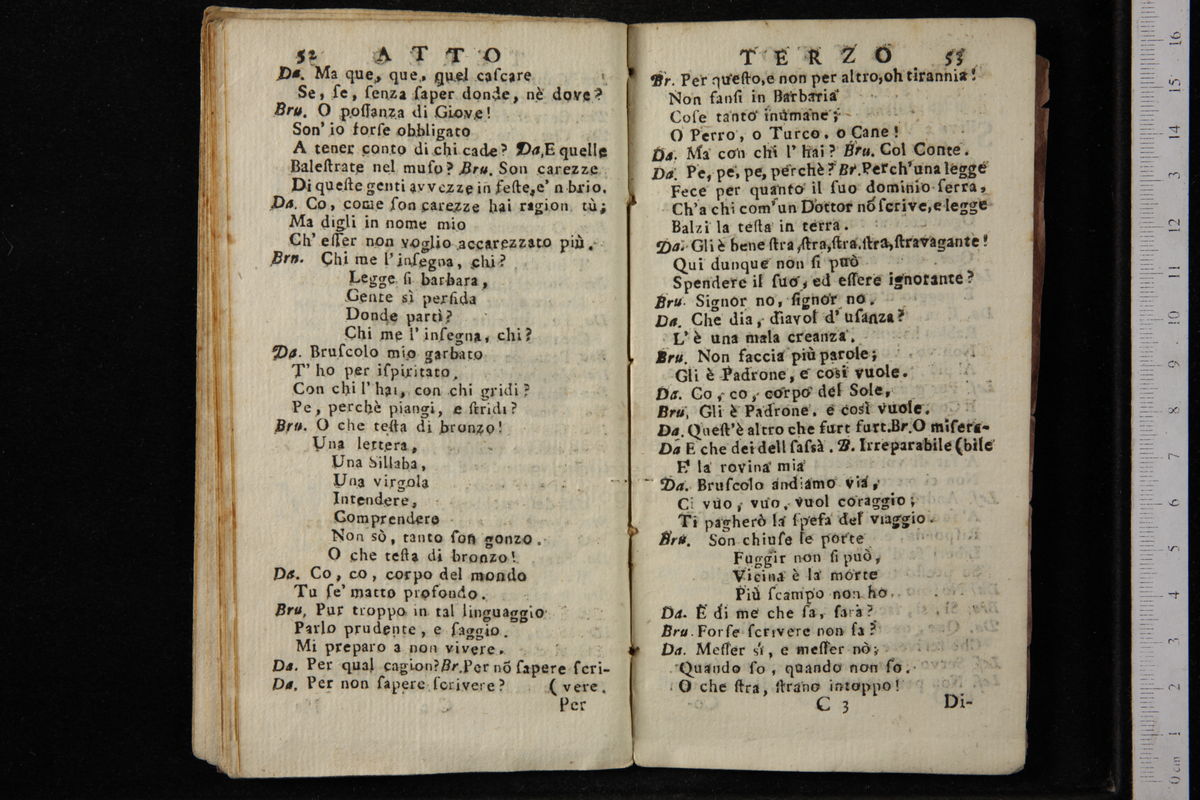 52 ATTO
Da. Ma que, que, quel caſcare
Se, ſe, ſenza ſaper donde, nè dove?
Bru. O poſſanza di Giove!
Son' io forſe obbligato
A tener conto di chi cade? Da, E quelle
Baleſtrate nel muſo? Bru. Son carezze
Di queſte genti avvezze in feſte, e' n brio.
Da. Co, come ſon carezze hai ragion tù;
Ma digli in nome mio
Ch' eſſer non voglio accarezzato più.
Brn. Chi me l' inſegna, chi?
Legge ſi barbara,
Gente sì perfida
Donde partì?
Chi me l' inſegna, chi?
Da. Bruſcolo mio garbato
T' ho per iſpiritato.
Con chi l' hai, con chi gridi?
Pe, perchè piangi, e ſtridi?
Bru. O che teſta di bronzo!
Una lettera,
Una Sillaba,
Una virgola
Intendere,
Comprendere
Non sò, tanto ſon gonzo.
O che teſta di bronzo!
Da. Co, co, corpo del mondo
Tu ſe' matto profondo.
Bru. Pur troppo in tal linguaggio
Parlo prudente, e ſaggio.
Mi preparo a non vivere.
Da. Per qual cagion? Br. Per nõ ſapere ſcri-
Da. Per non ſapere ſcrivere? (vere.
Per
TERZO 53
Br. Per queſto, e non per altro, oh tirannia!
Non fanſi in Barbaria
Coſe tanto inumane;
O Perro, o Turco, o Cane!
Da. Ma con chi l' hai? Bru. Col Conte.
Da. Pe, pe, pe, perchè? Br. Perch' una legge
Fece per quanto il ſuo dominio ſerra,
Ch' a chi com' un Dottor nõ ſcrive, e legge
Balzi la teſta in terra.
Da. Gli è bene ſtra, ſtra, ſtra, ſtra, ſtravagante!
Qui dunque non ſi può
Spendere il ſuo, ed eſſere ignorante?
Bru. Signor no, ſignor no.
Da. Che dia, diavol d' uſanza?
L' è una mala creanza.
Bru. Non faccia più parole;
Gli è Padrone, e così vuole.
Da. Co, co, corpo del Sole,
Bru, Gli è Padrone, e così vuole.
Da. Queſt' è altro che furt furt. Br. O miſera-
Da E che dei dell ſaſsà. B. Irreparabile (bile
E' la rovina mia
Da. Bruſcolo andiamo via,
Ci vuo, vuo, vuol coraggio;
Ti pagherò la ſpeſa del viaggio.
Bru. Son chiuſe le porte
Fuggir non ſi può,
Vicina è la morte
Più ſcampo non ho.
Da. E di me che ſa, ſarà?
Bru. Forſe ſcrivere non ſa?
Da. Meſſer sì, e meſſer nò;
Quando ſo, quando non ſo.
O che ſtra, ſtrano intoppo!
C 3 Di-
16
15
14
13
12
11
10
9
8
7
6
5
4
3
2
1
0 cm